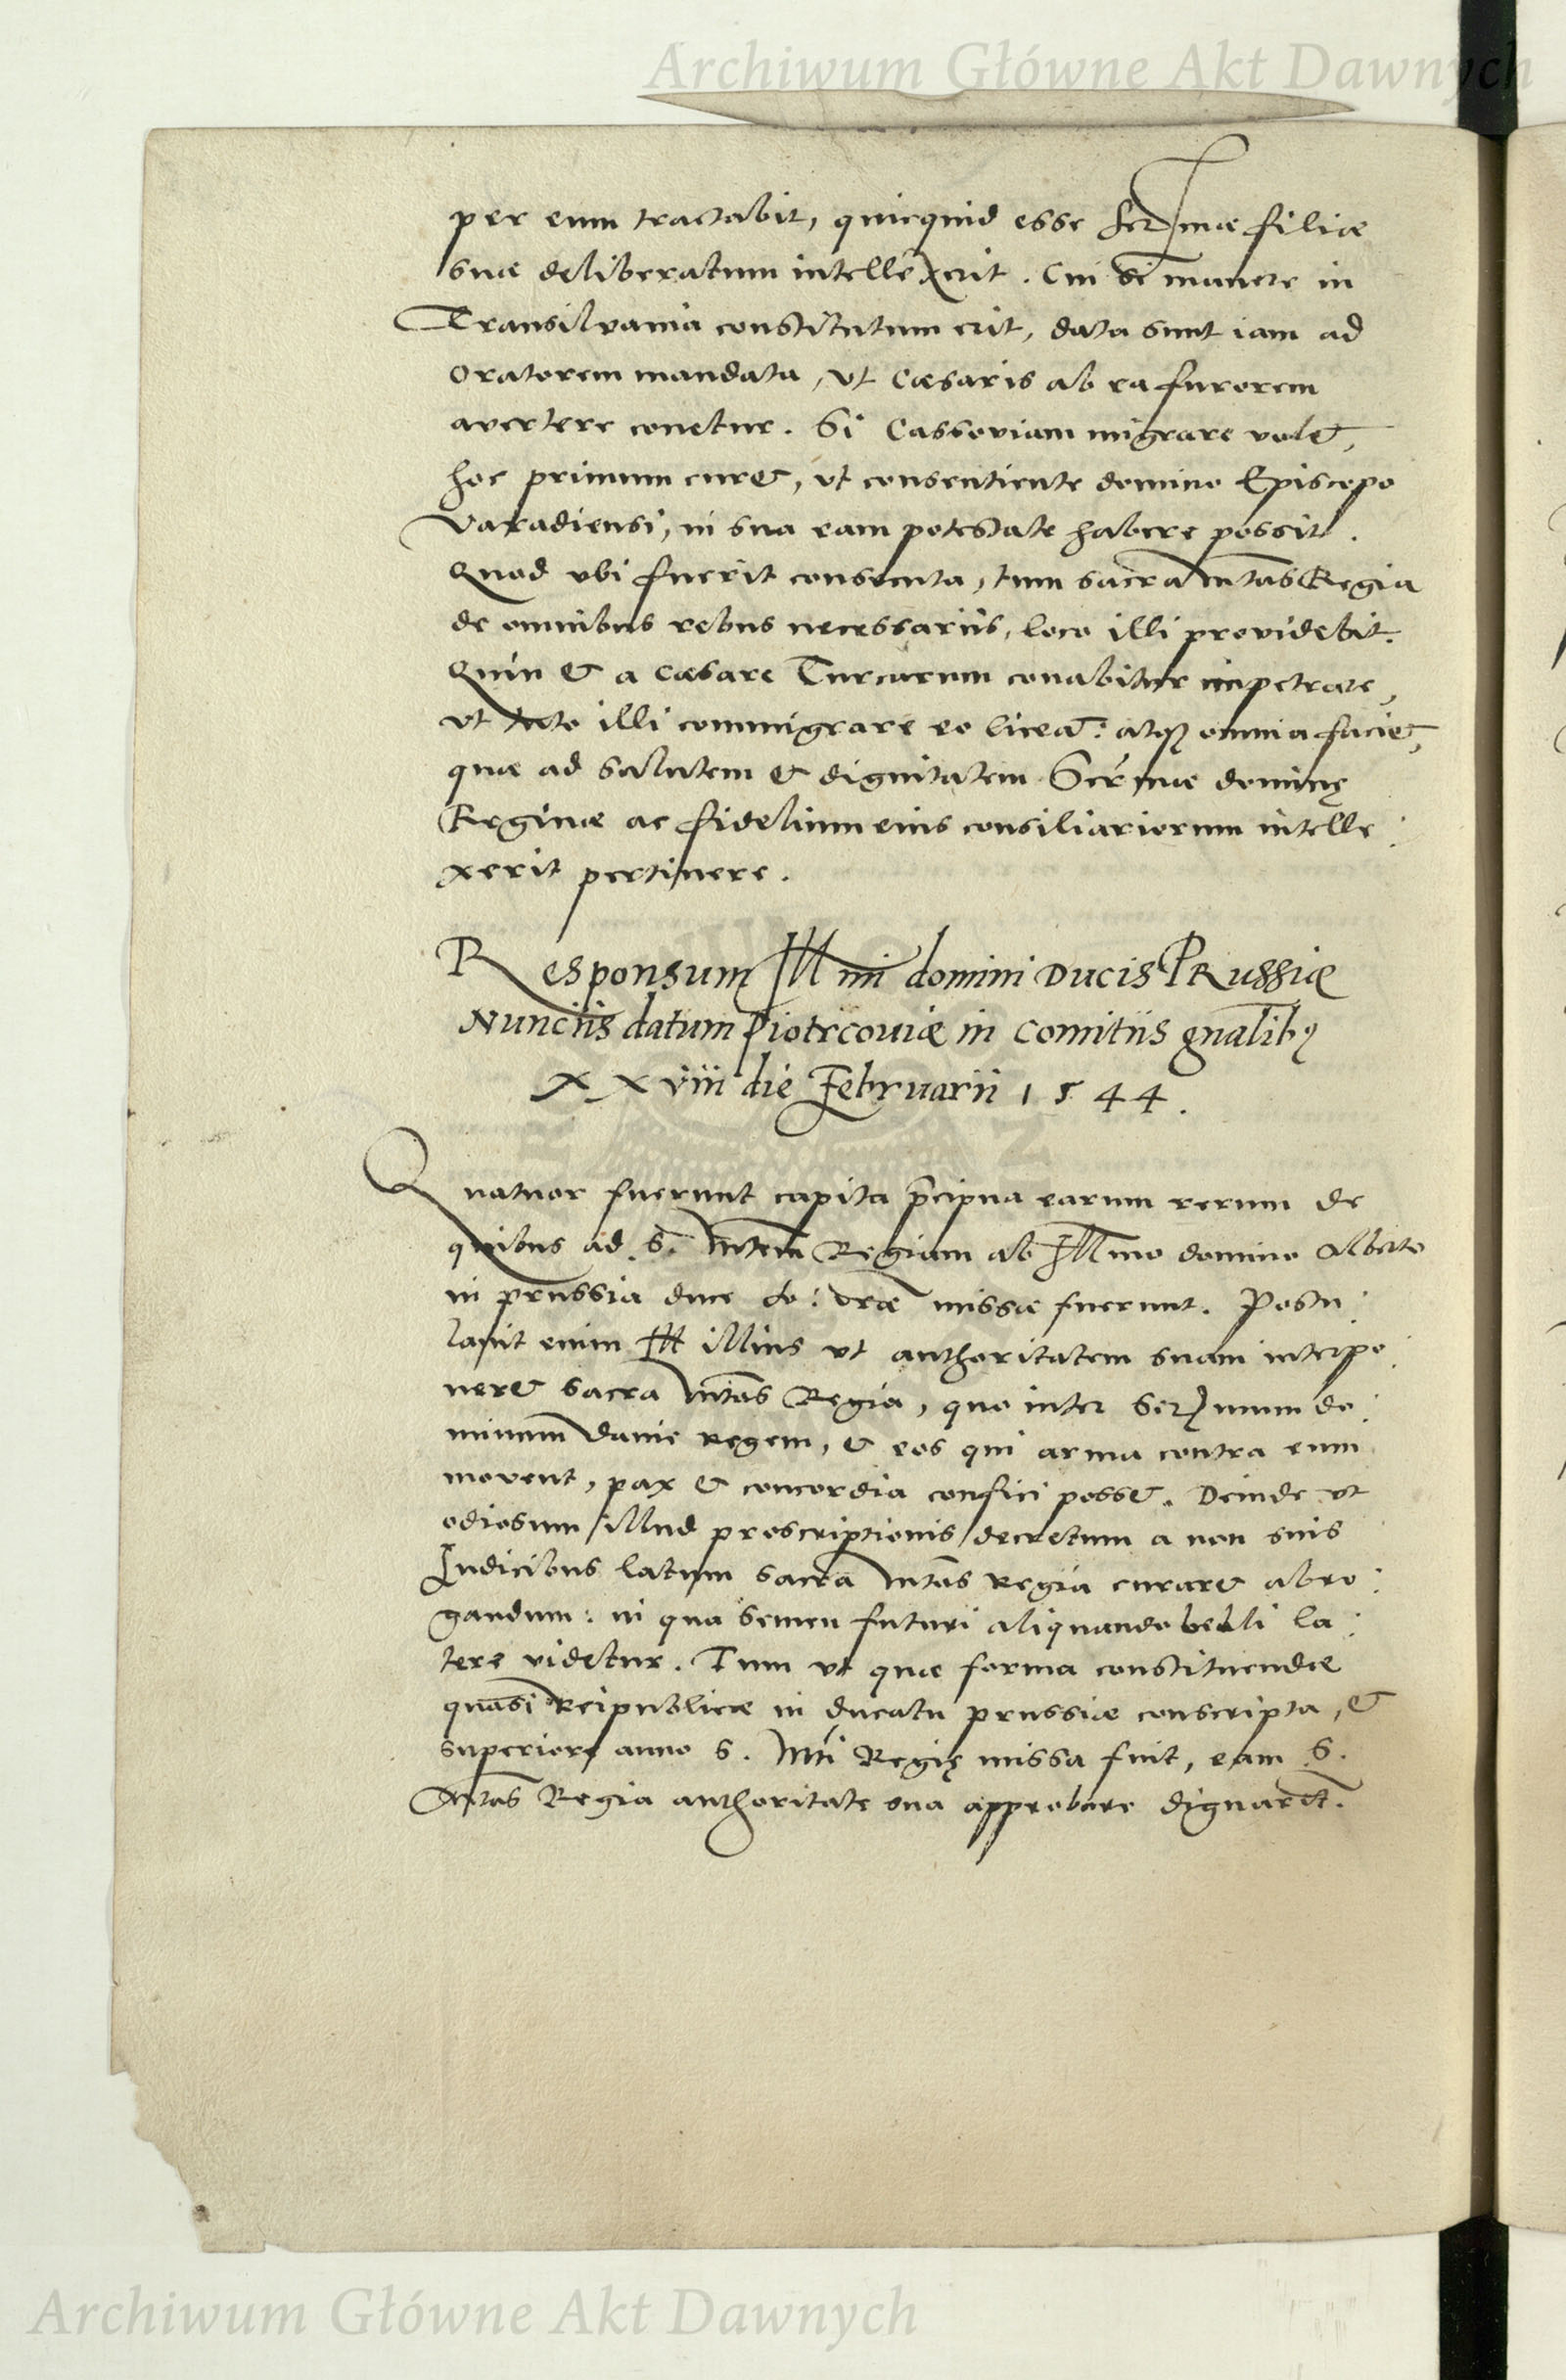 Archiwum Główne Akt Dawnych
per eum tractabit, quicquid esse Ser mae filiae
suae deliberatum intellexerit. Cui si manere in
Transilvania constitutum erit, data sunt iam ad
Oratorem mandata, ut Caesaris ab ea furorem
avertere conetur. Si Cassoviam migrare volet,
hoc primum curet, ut consentiente domino Episcopo
Varadiensi, in sua eam potestate habere possit.
Quod ubi fuerit consecuta, tum sacra Mtas Regia
de omnibus rebus necessariis, loco illi providebit.
Quin & a Caesare Turcarum conabitur impetrare,
ut tuto illi commigrare eo liceat: atq omnia faciet,
quae ad salutem & dignitatem Ser mae dominę
Reginae ac fidelium eius consiliariorum intelle:
xerit pertinere.
Responsum Ill mi domini Ducis PRussiae
Nunciis datum Piotrcoviae in Comitiis gnalibq
XXviii die Februarii 1544.
Quatuor fuerunt capita pcipua earum rerum de
quibus ad S. Mtem Regiam ab Ill mo domino Alberto
in prussia duce missae fuerunt. Postu:
lavit enim Ill illius ut authoritatem suam interpo:
neret sacra Mtas Regia, quo inter Ser mum do:
minum Danie regem, & eos qui arma contra eum
movent, pax & concordia confici posset. Deinde ut
odiosum illud proscriptionis decretum a non suis
Iudicibus latum sacra Mtas regia curaret abro:
gandum: in qua semen futuri aliquando belli la:
tere videtur. Tum ut quae forma constituendae
quasi Reipublicae in ducatu prussiae conscripta, &
superiore anno S. Mti Regię missa fuit, eam S.
Mtas Regia authoritate sua approbare dignaret.
Archiwum Główne Akt Dawnych